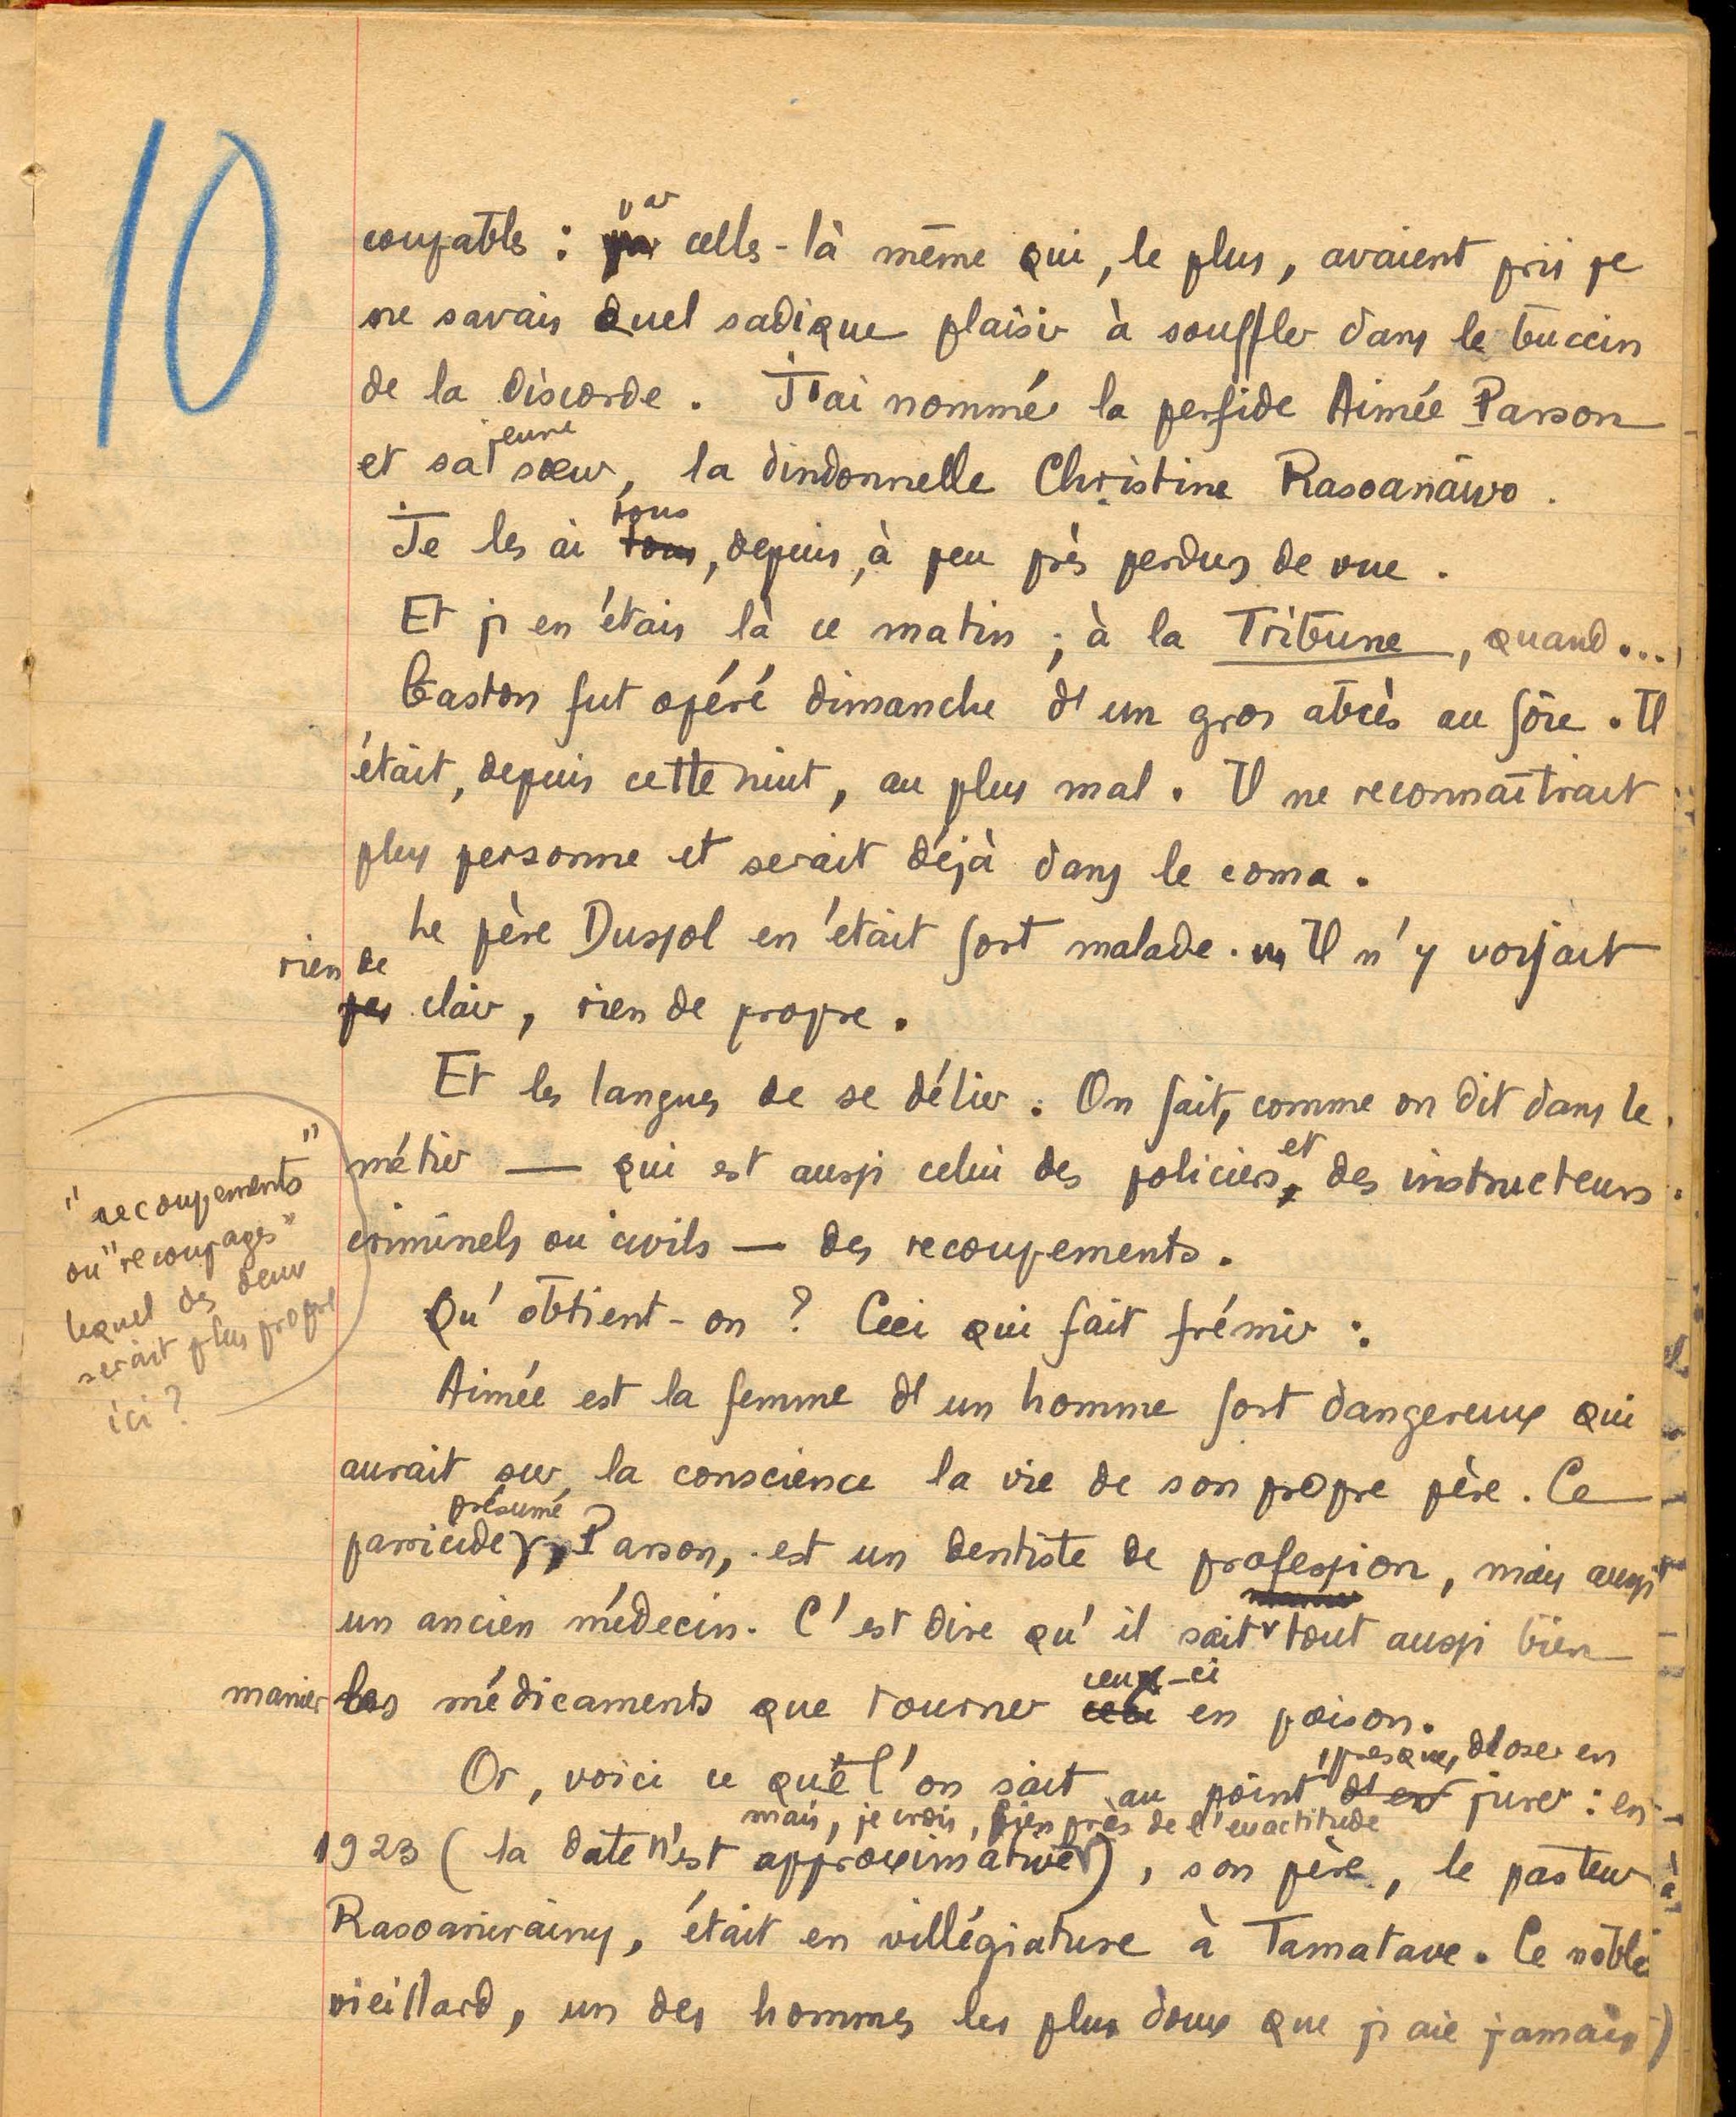 10
coupable : par celles-là même qui, le plus, avaient pris je
ne savais quel sadique plaisir à souffler dans le buccin
de la discorde. J'ai nommé la perfide Aimée Parson
et sa jeune sœur, la dindonnelle Christine Rasoanaivo.
Je les ai tous, depuis, à peu près perdus de vue.
Et j'en étais là ce matin ; à la Tribune, quand...
Gaston fut opéré dimanche d'un gros abcès au foie. Il
était, depuis cette nuit, au plus mal. Il ne reconnaîtrait
plus personne et serait déjà dans le coma.
Le père Dussol en était fort malade. Il n'y voyait
rien de clair, rien de propre.
Et les langues de se délier. On fait, comme on dit dans le
métier — qui est aussi celui des policiers et des instructeurs
criminels ou civils — des recoupements.
"recoupements"
ou "recoupages"
lequel des deux
serait plus propre
ici ?
Qu'obtient-on ? Ceci qui fait frémir :
Aimée est la femme d'un homme fort dangereux qui
aurait sur la conscience la vie de son propre père. Ce
parricide présumé, Parson, est un dentiste de profession, mais aussi
un ancien médecin. C'est dire qu'il sait tout aussi bien
manier les médicaments que tourner ceux-ci en poison.
Or, voici ce que l'on sait au point, presque, d'oser en jurer : en
1923 (la date n'est approximative mais, je crois, bien près de l'exactitude), son père, le pasteur
était en villégiature à Tamatave. Ce noble
vieillard, un des hommes les plus doux que j'aie jamais